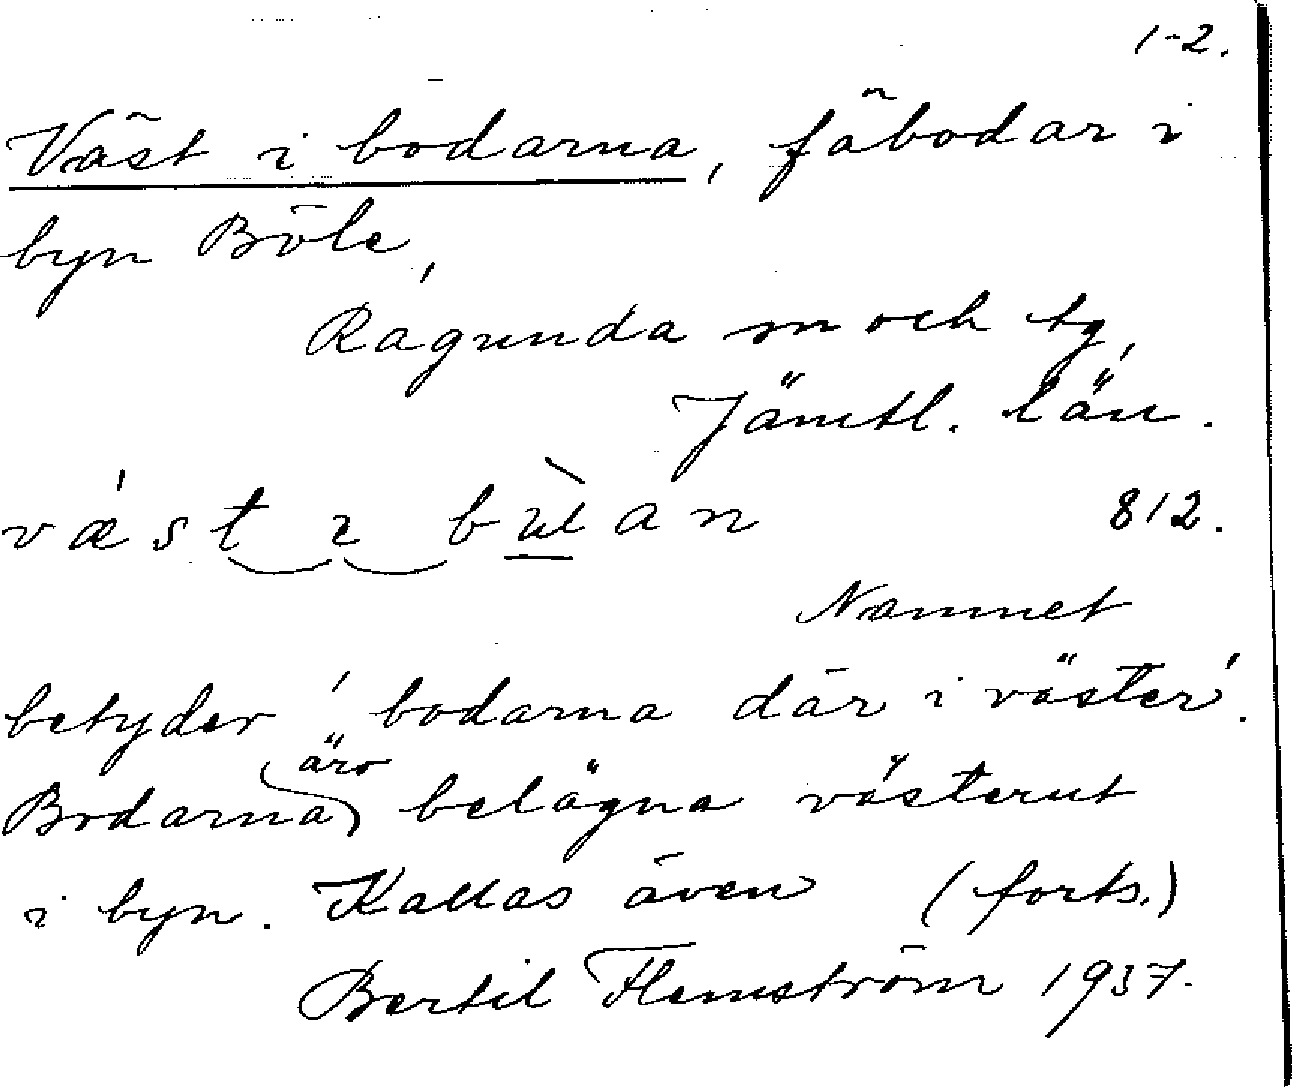 1-2.
Väst i bodarna, fäbodar i
byn Böle,
Ragunda sn och tg,
Jämtl. län.
vǽst ɩ bùɫan 812.
Namnet
betyder 'bodarna där i väster'.
Bodarna äro belägna västerut
i byn. Kallas även (forts.)
Bertil Flemström 1937.